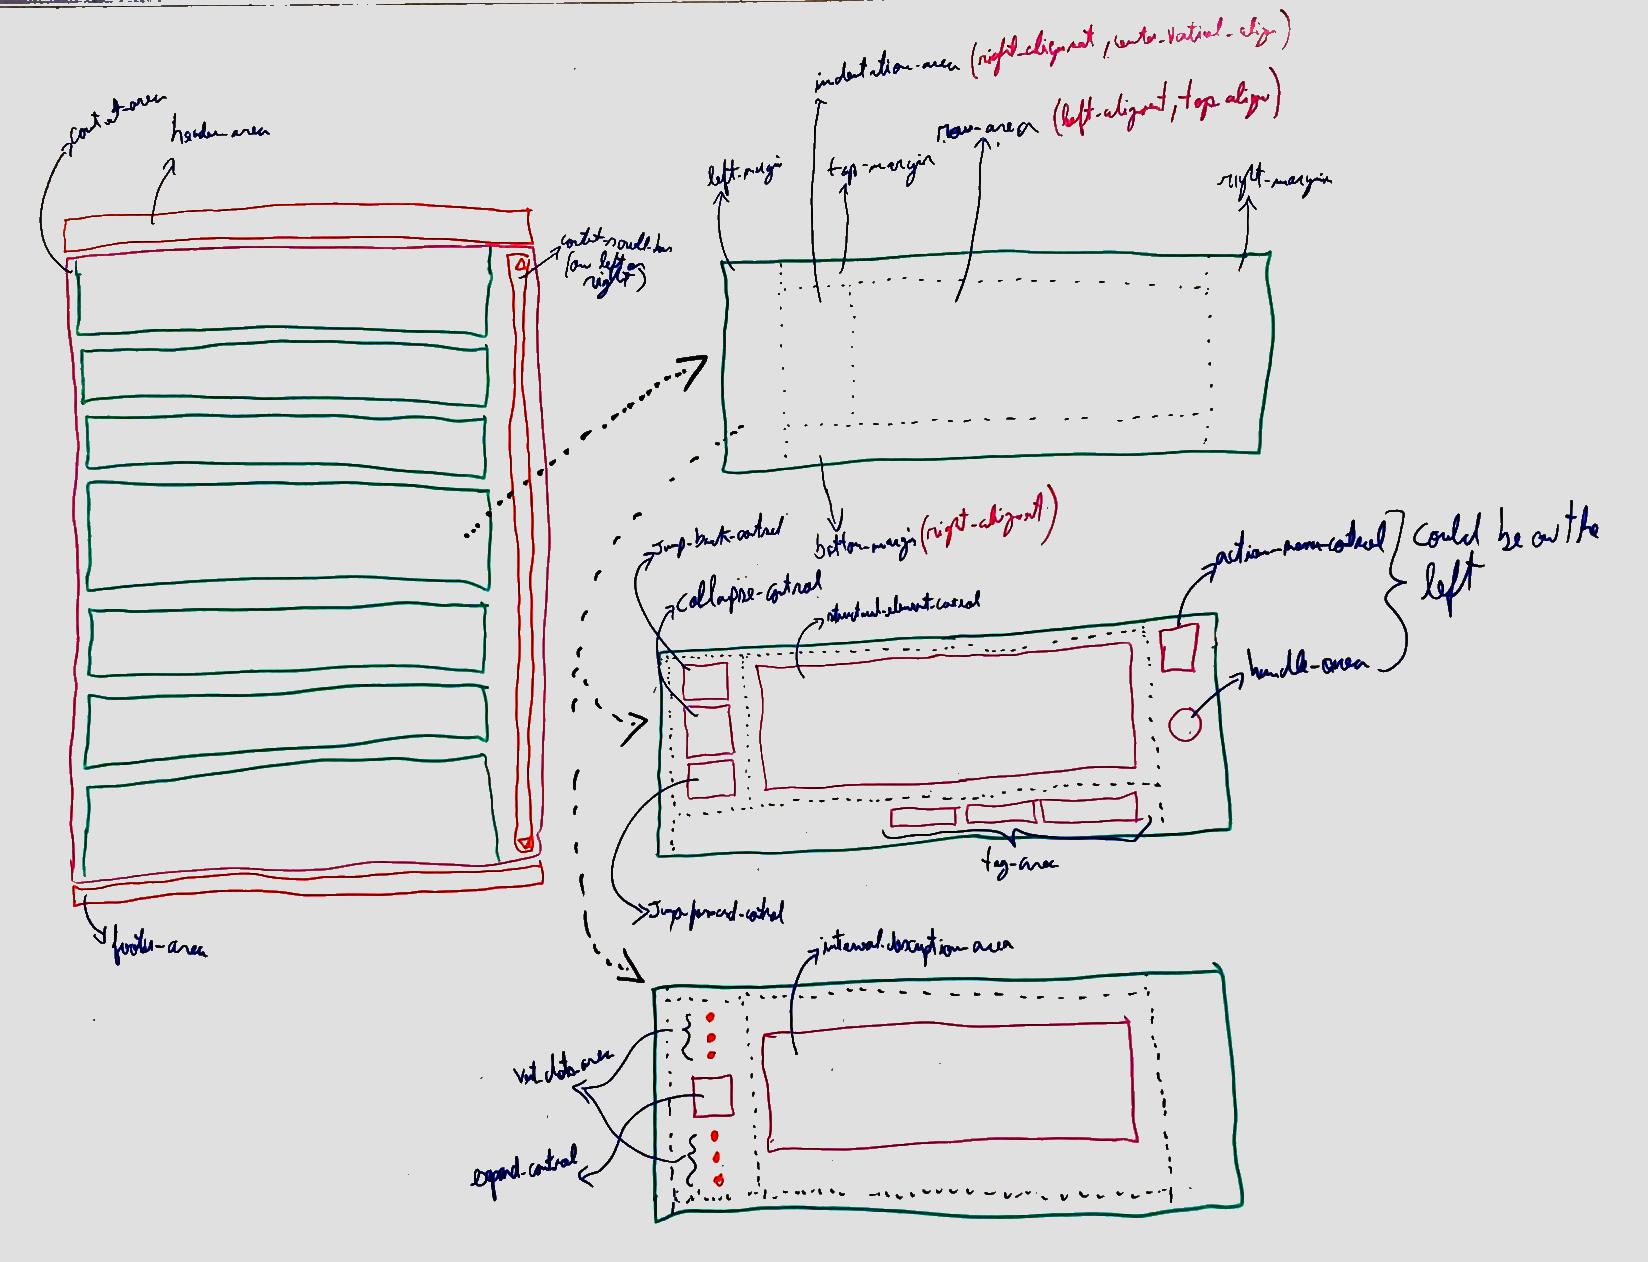 content-area
header-area
content-scroll-bar
(on left or
right)
indentation-area (right-alignment, center-vertical-align)
row-area (left-alignment, top align)
left-margin
top-margin
right-margin
bottom-margin (right-alignment)
Jump-back-control
collapse-control
structural-element-control
action-menu-control
could be on the
left
handle-area
tag-area
Jump-forward-control
footer-area
interval-description-area
vert_dots_area
expand-control